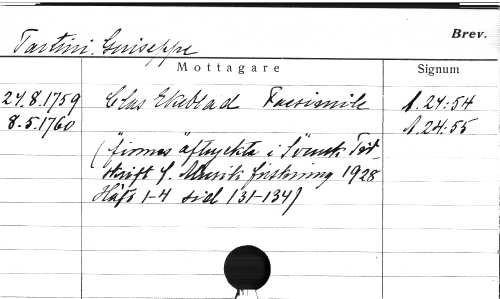 Brev.
Tartini. Guiseppe
Mottagare Signum
24.8.1759 Clas Ekeblad Facsimile 1.24:54
8.5.1760 1.24:55
(finnes avtryckta i Svensk Tid-
skrift f. Musikforskning 1928
Häft 1-4 sid 131-134)